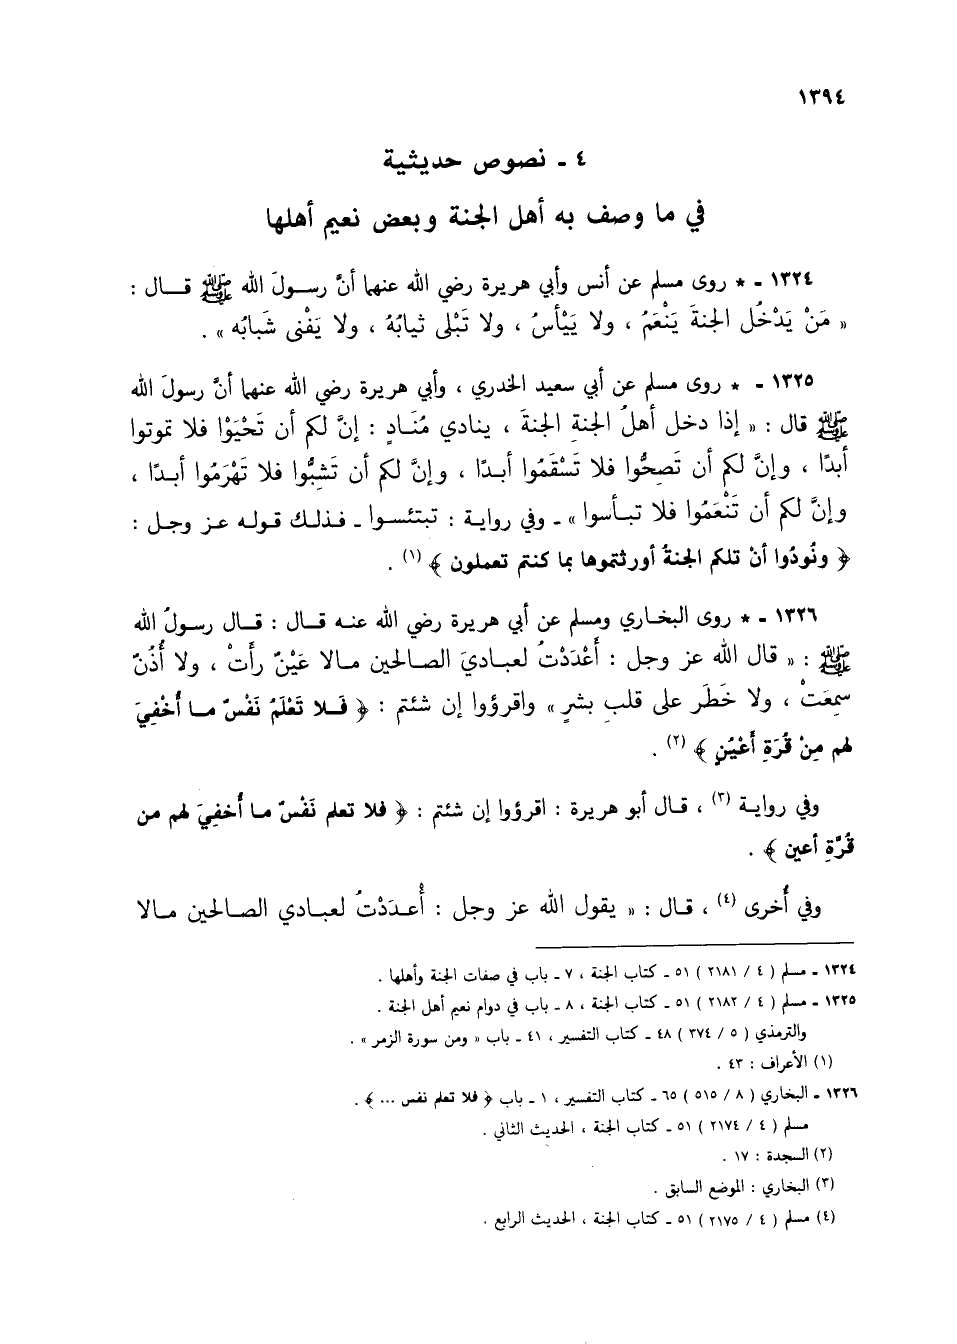 ١٣٩٤
٤ - نصوص حديثية
في ما وصف به أهل الجنة وبعض نعيم أهلها
١٣٢٤ - * روى مسلم عن أنس وأبي هريرة رضي الله عنهما أنَّ رسولَ الله ﷺ قال :
« مَنْ يَدْخُل الجنةَ يَنْعَمُ ، ولا يَيْأسُ ، ولا تَبْلى ثيابُهُ ، ولا يَفْنى شَبابُه » .
١٣٢٥ - * روى مسلم عن أبي سعيد الخدري ، وأبي هريرة رضي الله عنهما أنَّ رسولَ الله
ﷺ قال : « إذا دخل أهلُ الجنةِ الجنةَ ، ينادي مُنَادٍ : إنَّ لكم أن تَحْيَوْا فلا تموتوا
أبدًا ، وإنَّ لكم أن تَصِحُّوا فلا تَسْقَمُوا أبدًا ، وإنَّ لكم أن تَشِبُّوا فلا تَهْرَمُوا أبدًا ،
وإنَّ لكم أن تَنْعَمُوا فلا تبأسوا » - وفي رواية : تبتئسوا - فذلك قوله عز وجل :
﴿ ونُودُوا أنْ تلكم الجنةُ أورثتموها بما كنتم تعملون ﴾ (١) .
١٣٢٦ - * روى البخاري ومسلم عن أبي هريرة رضي الله عنه قال : قال رسولُ الله
ﷺ : « قال الله عز وجل : أَعْدَدْتُ لعباديَ الصالحين مالا عَيْنٌ رأتْ ، ولا أُذُنٌ
سمِعَتْ ، ولا خَطَر على قلبِ بشرٍ » واقرؤوا إن شئتم : ﴿ فَلا تَعْلَمُ نَفْسٌ ما أُخْفِيَ
لهم مِنْ قُرَةِ أَعْيُنٍ ﴾ (٢) .
وفي رواية (٣) ، قال أبو هريرة : اقرؤوا إن شئتم : ﴿ فلا تعلم نَفْسٌ ما أُخفِيَ لهم من
قُرَّةِ أعين ﴾ .
وفي أُخرى (٤) ، قال : « يقول الله عز وجل : أُعدَدْتُ لعبادي الصالحين مالا
١٣٢٤ - مسلم ( ٤ / ٢١٨١ ) ٥١ - كتاب الجنة ، ٧ - باب في صفات الجنة وأهلها .
١٣٢٥ - مسلم ( ٤ / ٢١٨٢ ) ٥١ - كتاب الجنة ، ٨ - باب في دوام نعيم أهل الجنة .
والترمذي ( ٥ / ٣٧٤ ) ٤٨ - كتاب التفسير ، ٤١ - باب « ومن سورة الزمر » .
(١) الأعراف : ٤٣ .
١٣٢٦ - البخاري ( ٨ / ٥١٥ ) ٦٥ - كتاب التفسير ، ١ - باب ﴿ فلا تعلم نفس ... ﴾ .
مسلم ( ٤ / ٢١٧٤ ) ٥١ - كتاب الجنة ، الحديث الثاني .
(٢) السجدة : ١٧ .
(٣) البخاري : الموضع السابق .
(٤) مسلم ( ٤ / ٢١٧٥ ) ٥١ - كتاب الجنة ، الحديث الرابع .